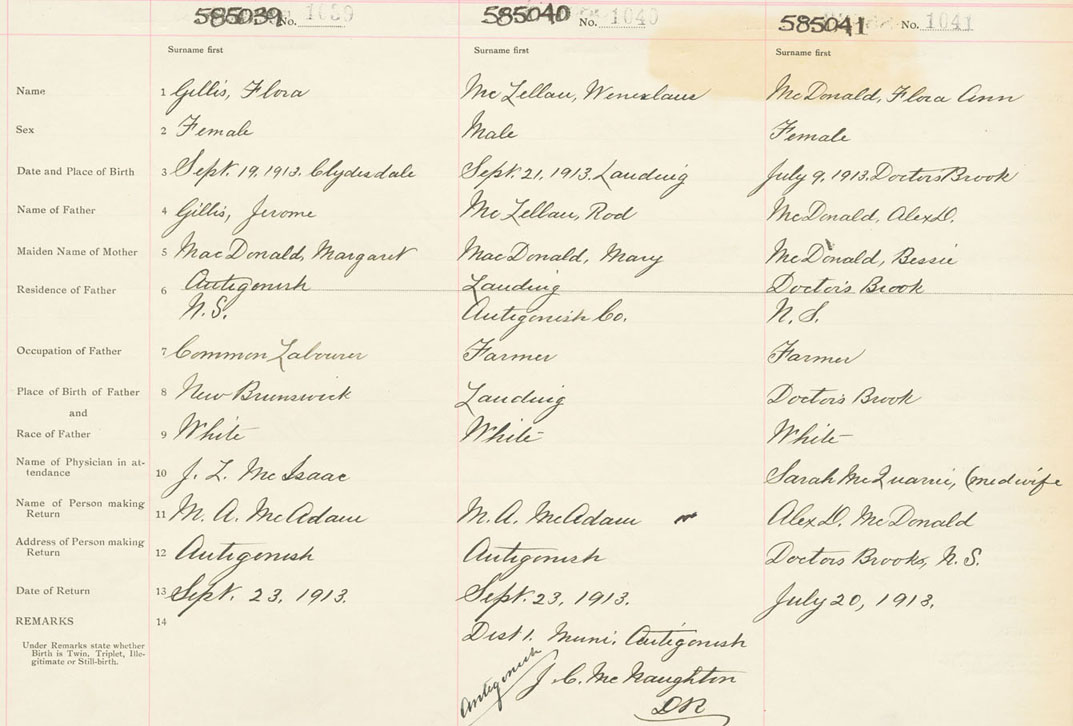 585039 No. 1039
585040 No. 1040
585041 No. 1041
Surname first
Surname first
Surname first
Name 1 Gillis, Flora
McLellan, Wenezlaus
McDonald, Flora Ann
Sex 2 Female
Male
Female
Date and Place of Birth 3 Sept. 19, 1913. Clydesdale
Sept. 21, 1913. Landing
July 9, 1913. Doctors Brook
Name of Father 4 Gillis, Jerome
McLellan, Rod
McDonald, Alex D.
Maiden Name of Mother 5 MacDonald, Margaret
MacDonald, Mary
McDonald, Bessie
Residence of Father 6 Antigonish
N.S.
Landing
Antigonish Co.
Doctor's Brook
N.S.
Occupation of Father 7 Common Labourer
Farmer
Farmer
Place of Birth of Father 8 New Brunswick
Landing
Doctor's Brook
and
Race of Father 9 White
White
White
Name of Physician in at-
tendance 10 J. L. McIsaac
Sarah McQuarrie, (medwife
Name of Person making
Return 11 M. A. McAdam
M. A. McAdam
Alex D. McDonald
Address of Person making
Return 12 Antigonish
Antigonish
Doctors Brook, N.S.
Date of Return 13 Sept. 23, 1913.
Sept. 23, 1913.
July 20, 1913.
REMARKS 14
Under Remarks state whether
Birth is Twin, Triplet, Ille-
gitimate or Still-birth.
Dist 1. Muni. Antigonish
Antigonish
J. C. McNaughton
DR